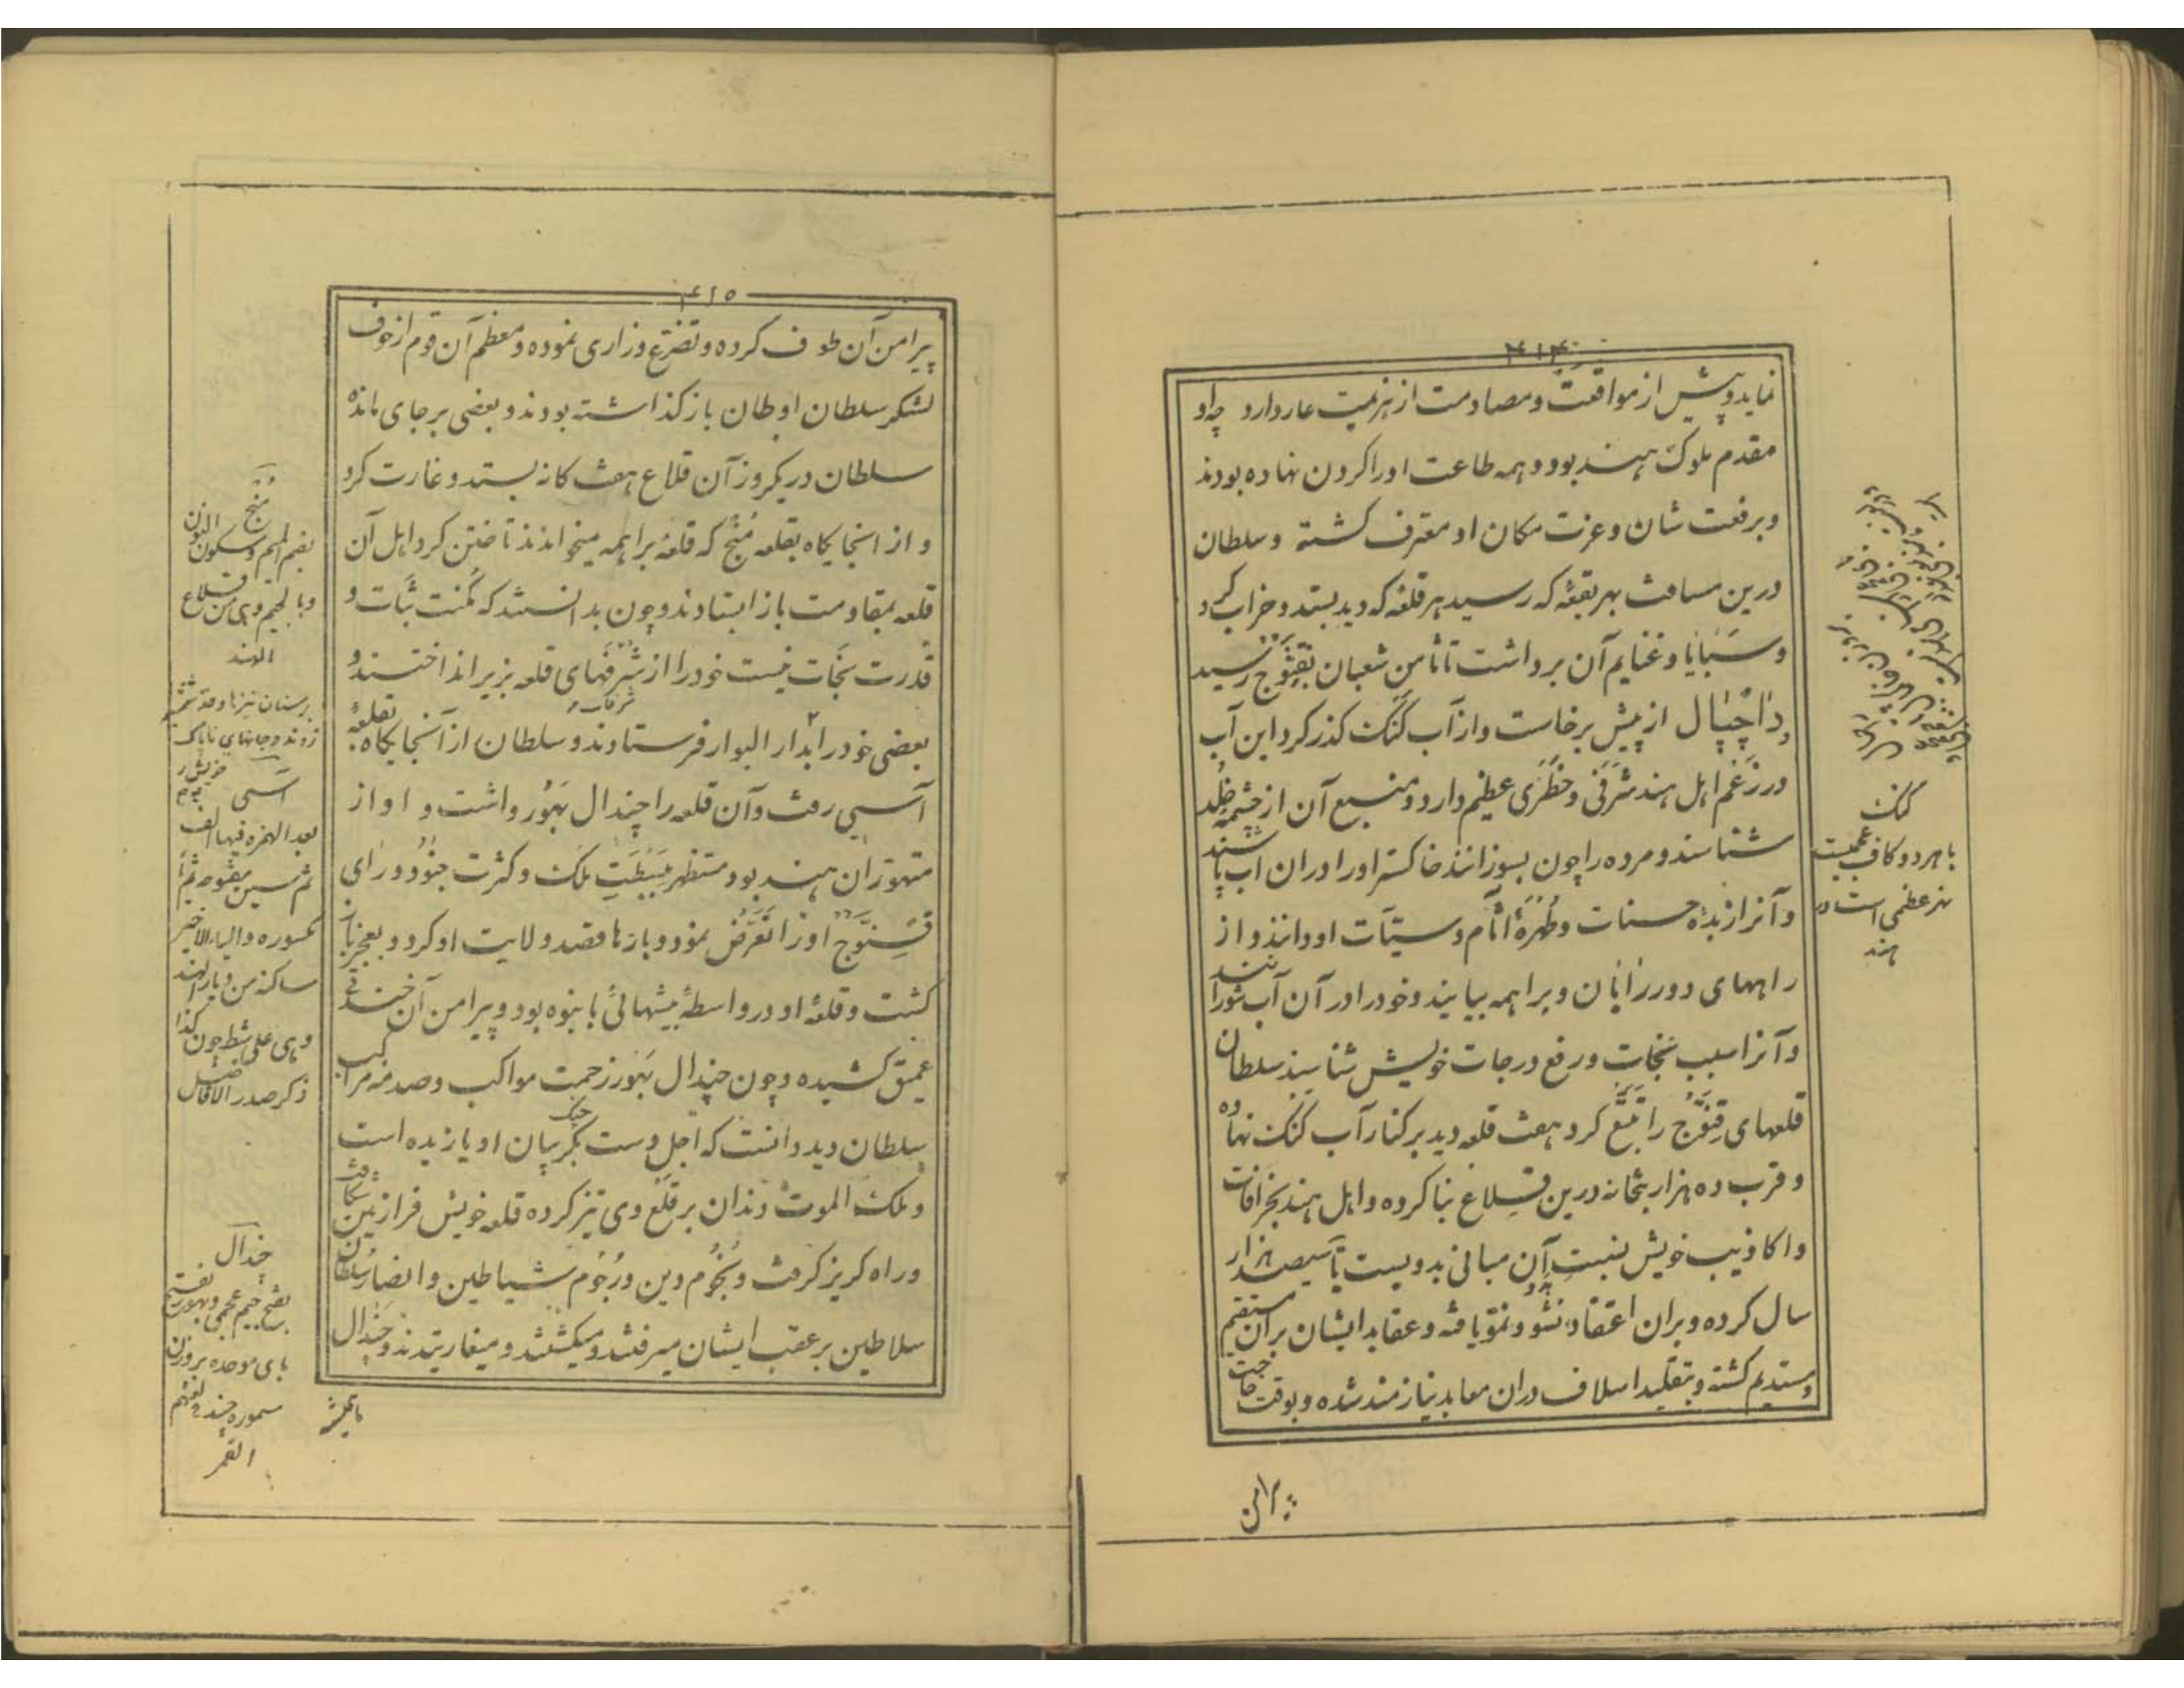 ۴۱۴
نماید و پیش از مواقفت و مصادمت از هزیمت عار دارد چه او
مقدم ملوک هند بود و همه طاعت او را کردن نهاده بودند
و برفعت شان و عزت مکان او معترف کشته و سلطان
درین مسافت بهر بقعه که رسید هر قلعه که دید بستد و خراب کرد
و سبایا و غنایم آن برداشت تا ثامن شعبان بقنوج رسید
و راچپال از پیش برخاست و از آب کنک کذر کرد و این آب
در زعم اهل هند شرفی و خطری عظیم دارد و منبع آن از چشمه خلد
شناسند و مرده را چون بسوزانند خاکستر او را در ان اب پاشند
و آنرا زبده حسنات و طهره آثام و سیئات او دانند و از
راههای دور رایان و براهمه بیایند و خود را در آن آب شورانند
و آنرا سبب نجات و رفع درجات خویش شناسند سلطان
قلعهای قنوج را تتبع کرد هفت قلعه دید بر کنار آب کنک نهاده
و قرب ده هزار بتخانه درین قلاع بنا کرده و اهل هند بخرافات
و اکاذیب خویش بنسبت آن مبانی بدویست تا سیصد هزار
سال کرده و بران اعتقاد نشو و نمو یافته و عقاید ایشان بر آن مستقیم
و مستدیم کشته و بتقلید اسلاف دران معابد نیازمند شده و بوقت حاجت
کنک
با هر دو کاف عجمیست
نهر عظمی است در
هند
پیرامن
۴۱۵
پیرامن آن طوف کرده و تضرع و زاری نموده و معظم آن قوم از خوف
لشکر سلطان اوطان باز کذاشته بودند و بعضی بر جای مانده
سلطان در یکروز آن قلاع هفت کانه بستد و غارت کرد
و از انجایکاه بقلعه منج که قلعه براهمه میخوانند تاختن کرد اهل آن
قلعه بمقاومت باز ایستادند و چون بدانستند که مکنت ثبات و
قدرت نجات نیست خود را از شرفهای قلعه بزیر انداختند و
شرفات
بعضی خود را بدار البوار فرستادند و سلطان از آنجایکاه بقلعه
آسی رفت و آن قلعه را چندال بهور داشت و او از
متهوران هند بود مستظهر ببسطت ملک و کثرت جنود و رای
قنوج او را تعرض نمود و بارها قصد ولایت او کرد و بعجز باز
کشت و قلعه او در واسطه بیشهائی بانبوه بود و پیرامن آن خندقی
عمیق کشیده و چون چندال بهور زحمت مواکب و صدمه مراکب
سلطان دید دانست که اجل دست بکریبان او یازیده است
و ملک الموت دندان بر قلع وی تیز کرده قلعه خویش فراز
و راه کریز کرفت و نجوم دین و رجوم شیاطین و انصار سلطان
سلاطین بر عقب ایشان میرفتند و میکشتند و میغاریتدند و چندال
منج
بضم المیم و سکون النون
و بالجیم وهی من قلاع
الهند
آسی
بعد الهمزه فیها الف
ثم سین مفتوحه ثم
مکسوره و الیاء الاخیر
ساکنه من دیار الهند
وهی علی شط جون کذا
ذکر صدر الافاضل
چندال
بفتح جیم عجمی و بهور بفتح
بای موحده بر وزن
سمور
القمر